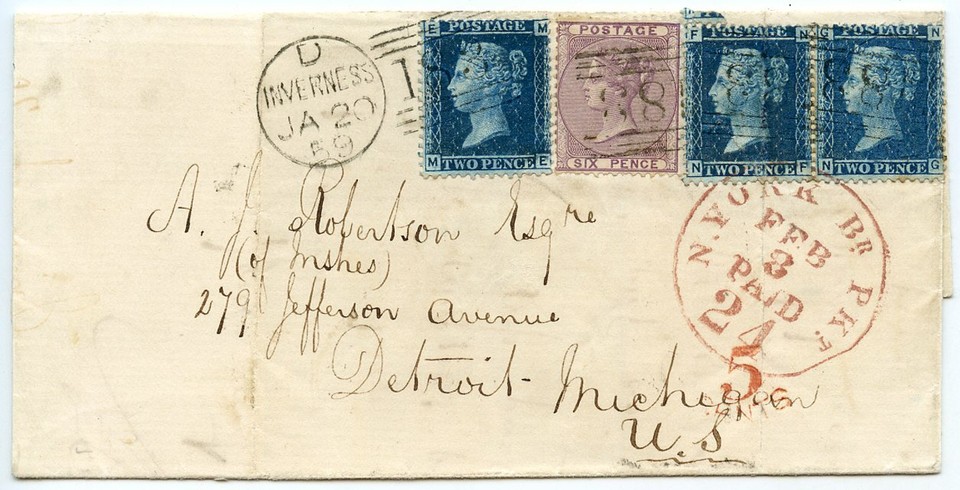 D
INVERNESS
JA 20
59
E M
POSTAGE
M TWO PENCE E
POSTAGE
SIX PENCE
F N
POSTAGE
N TWO PENCE F
G N
POSTAGE
N TWO PENCE G
A. J. Robertson Esqre
(of Inshes)
279 Jefferson Avenue
Detroit Michigan
U.S
N. YORK BR PKT
FEB
3
PAID
24
5
CENTS